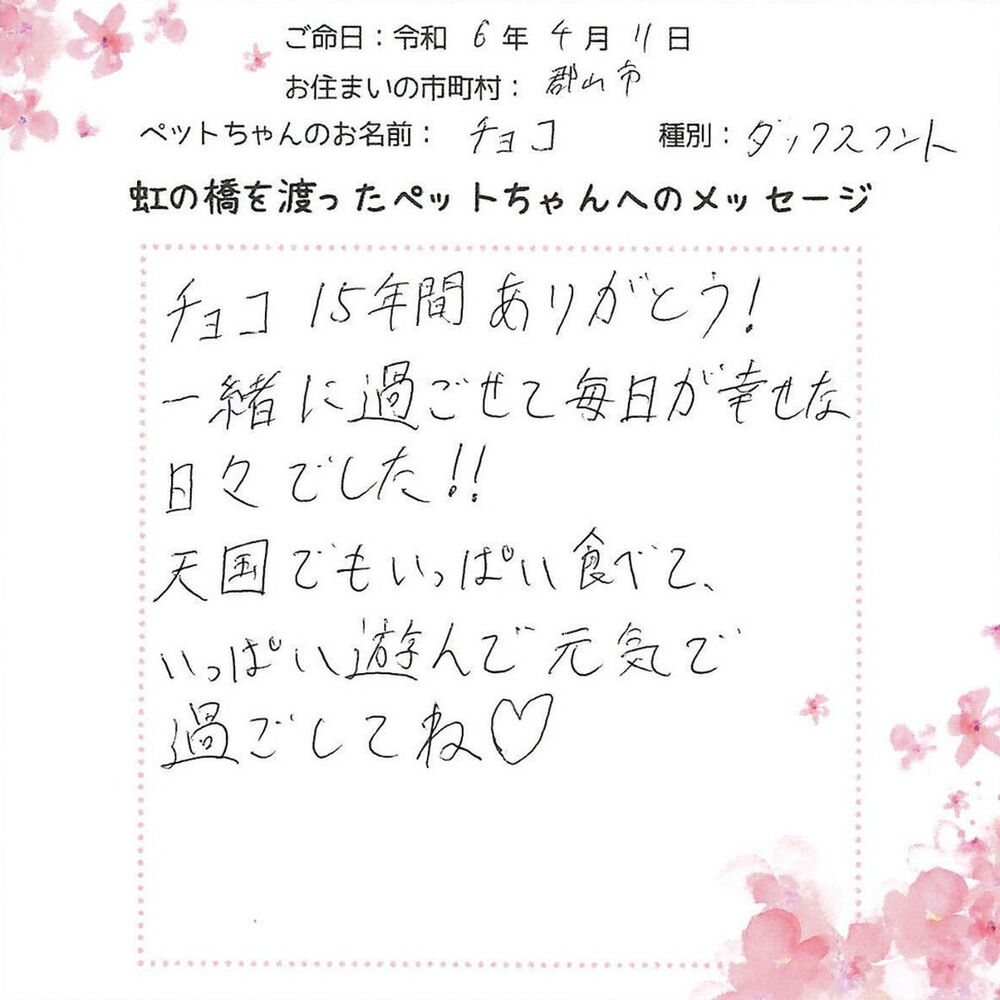 ご命日：令和 6 年 4 月 11 日
お住まいの市町村： 郡山市
ペットちゃんのお名前： チョコ 種別： ダックスフント
虹の橋を渡ったペットちゃんへのメッセージ
チョコ 15年間 ありがとう！
一緒に過ごせて毎日が幸せな
日々でした!!
天国でもいっぱい食べて、
いっぱい遊んで元気で
過ごしてね♡